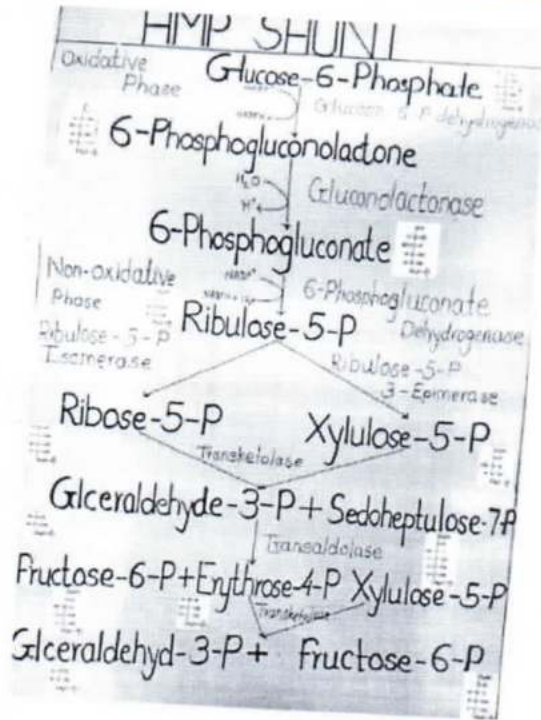 HMP SHUNT
Oxidative Phase
Glucose-6-Phosphate
Glucose 6 P dehydrogenase
6-Phosphogluconolactone
H₂O
H⁺
Gluconolactonase
6-Phosphogluconate
NADP⁺
6-Phosphogluconate Dehydrogenase
Non-oxidative Phase
Ribulose-5-P
Ribulose-5-P Isomerase
Ribulose-5-P 3-Epimerase
Ribose-5-P
Xylulose-5-P
Transketolase
Glceraldehyde-3-P+ Sedoheptulose-7P
Transaldolase
Fructose-6-P+Erythrose-4-P Xylulose-5-P
Transketolase
Glceraldehyd-3-P+ Fructose-6-P